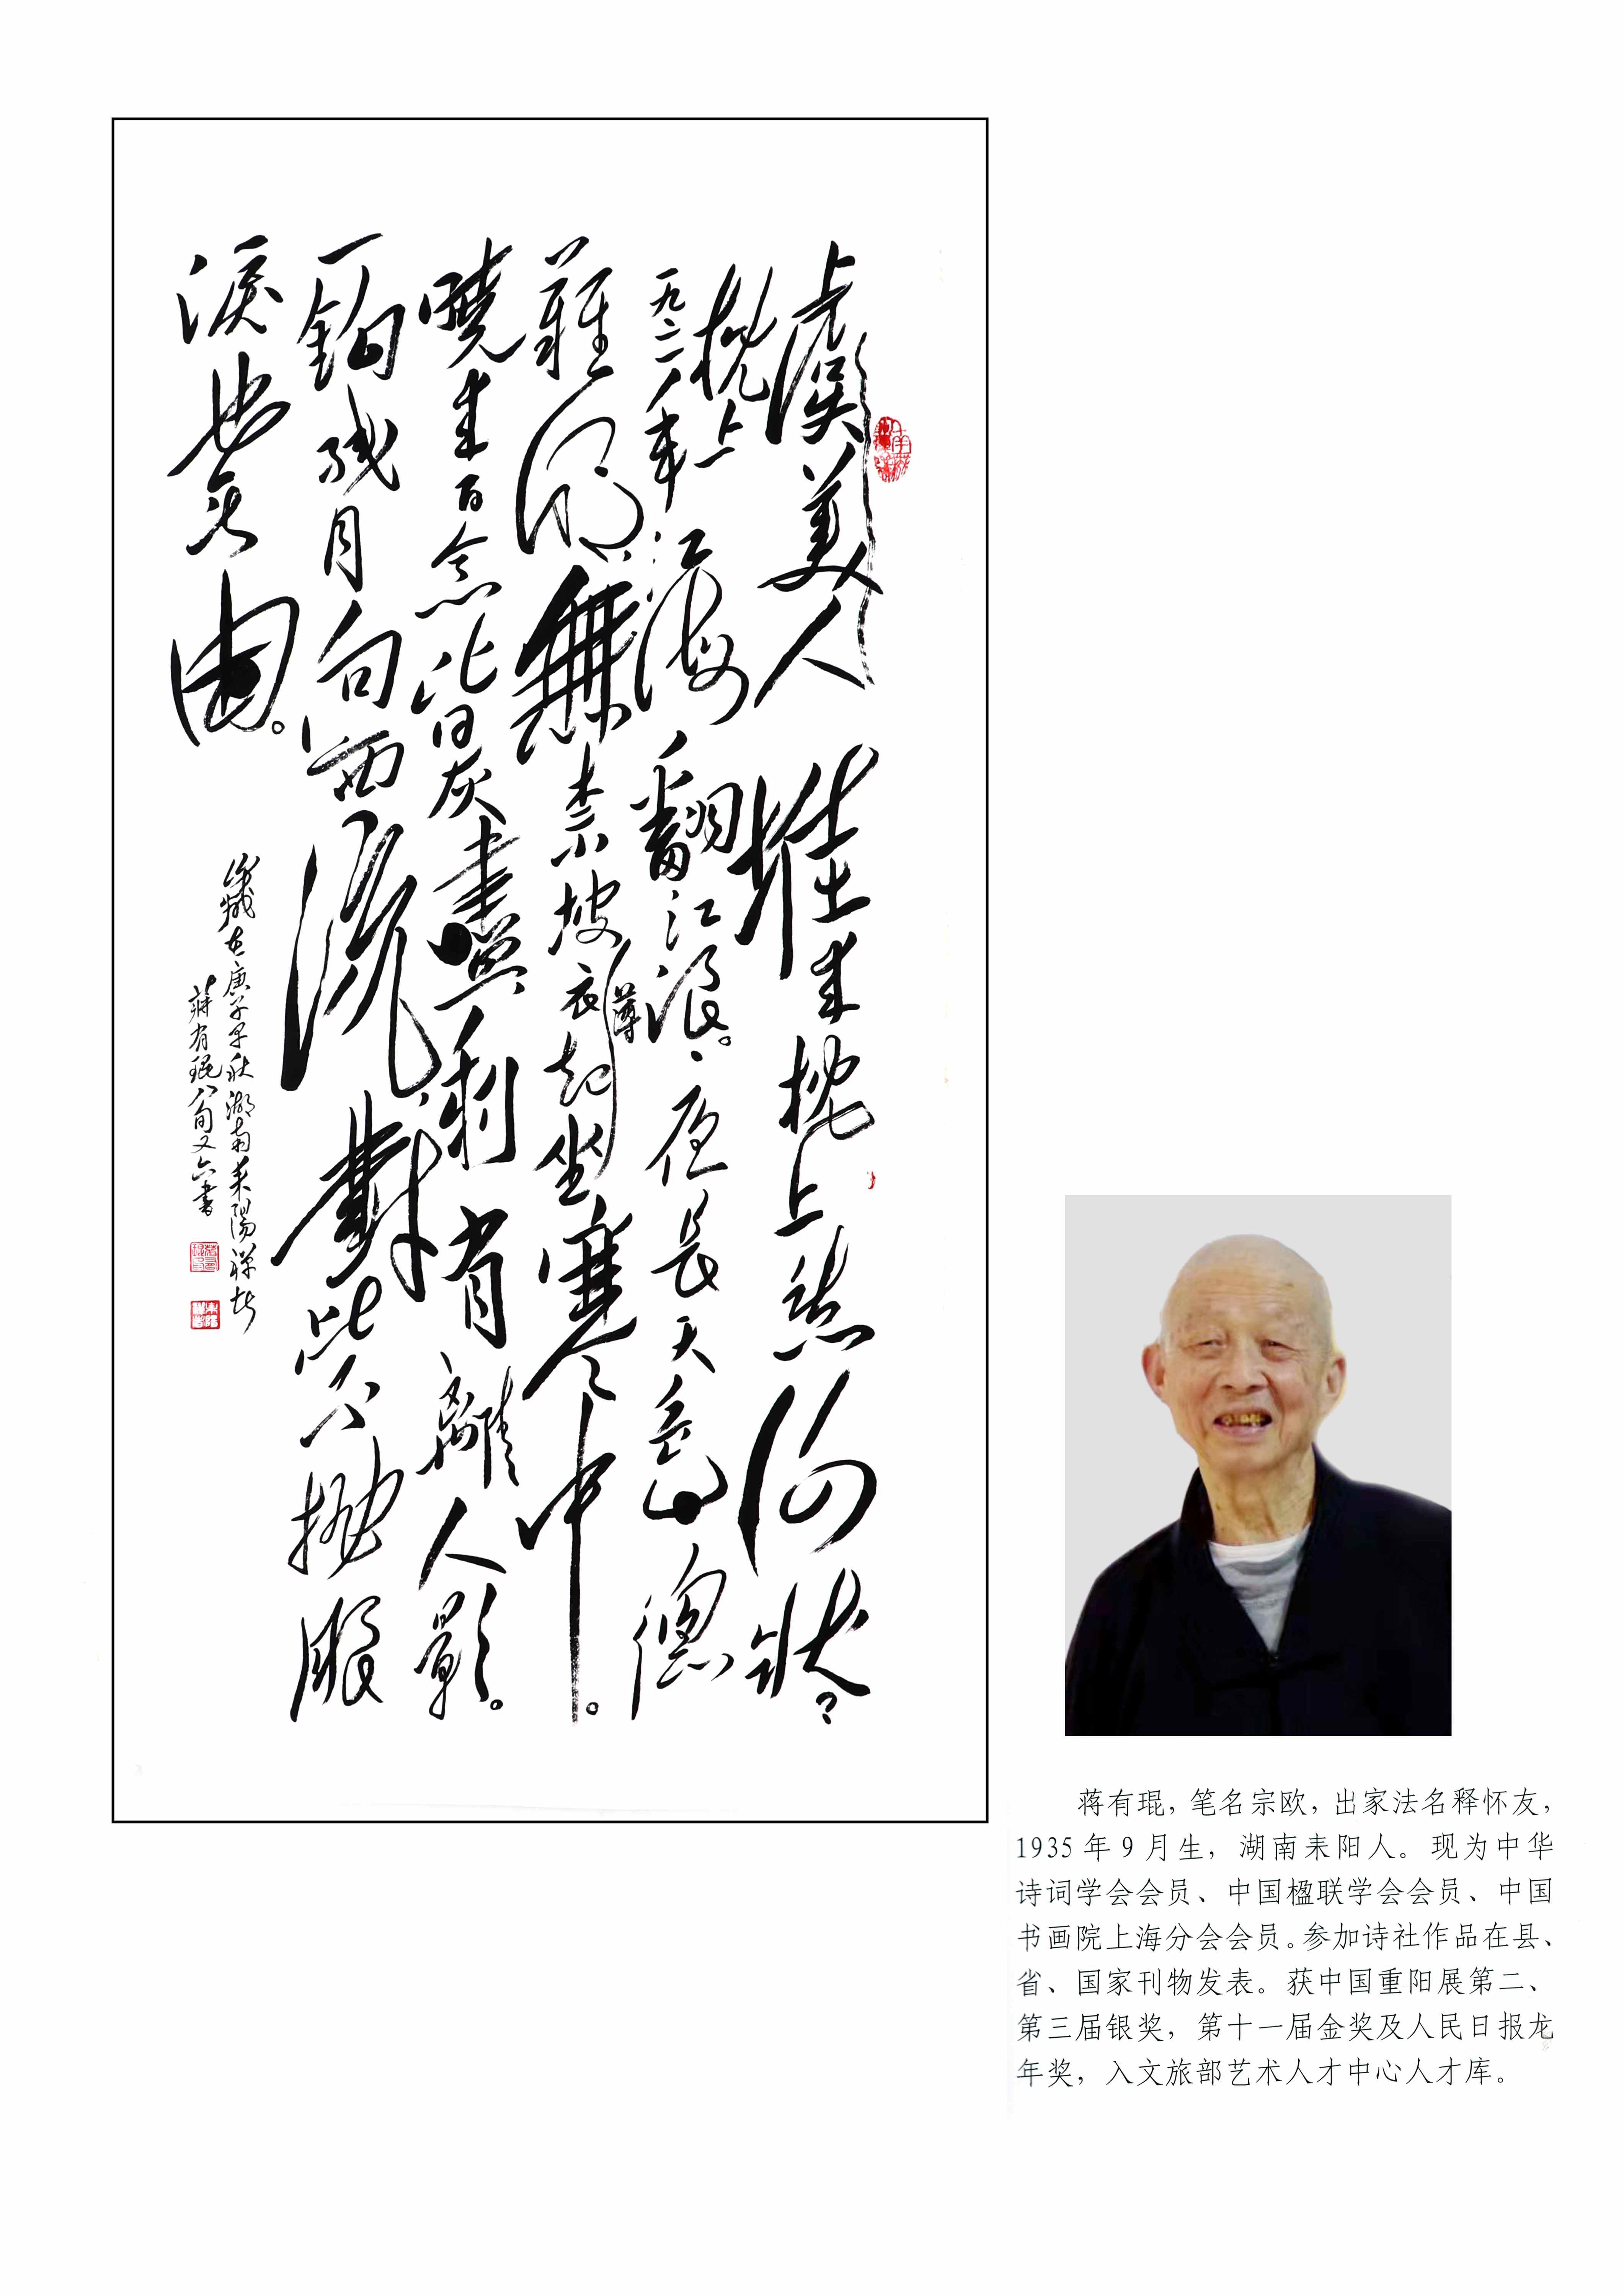 虞美人 堆来枕上愁何状?
枕上
一九二一年 江海翻江浪。夜長天色總
難明,無奈披衣起坐薄寒中。
曉来百念皆灰盡剩有離人影。
一鈎残月向西流,對此不抛眼
淚也無由。
歲在庚子早秋湖南耒陽
蒋有琨八旬又六書
蒋有琨，笔名宗欧，出家法名释怀友，
1935年9月生，湖南耒阳人。现为中华
诗词学会会员、中国楹联学会会员、中国
书画院上海分会会员。参加诗社作品在县、
省、国家刊物发表。获中国重阳展第二、
第三届银奖，第十一届金奖及人民日报龙
年奖，入文旅部艺术人才中心人才库。